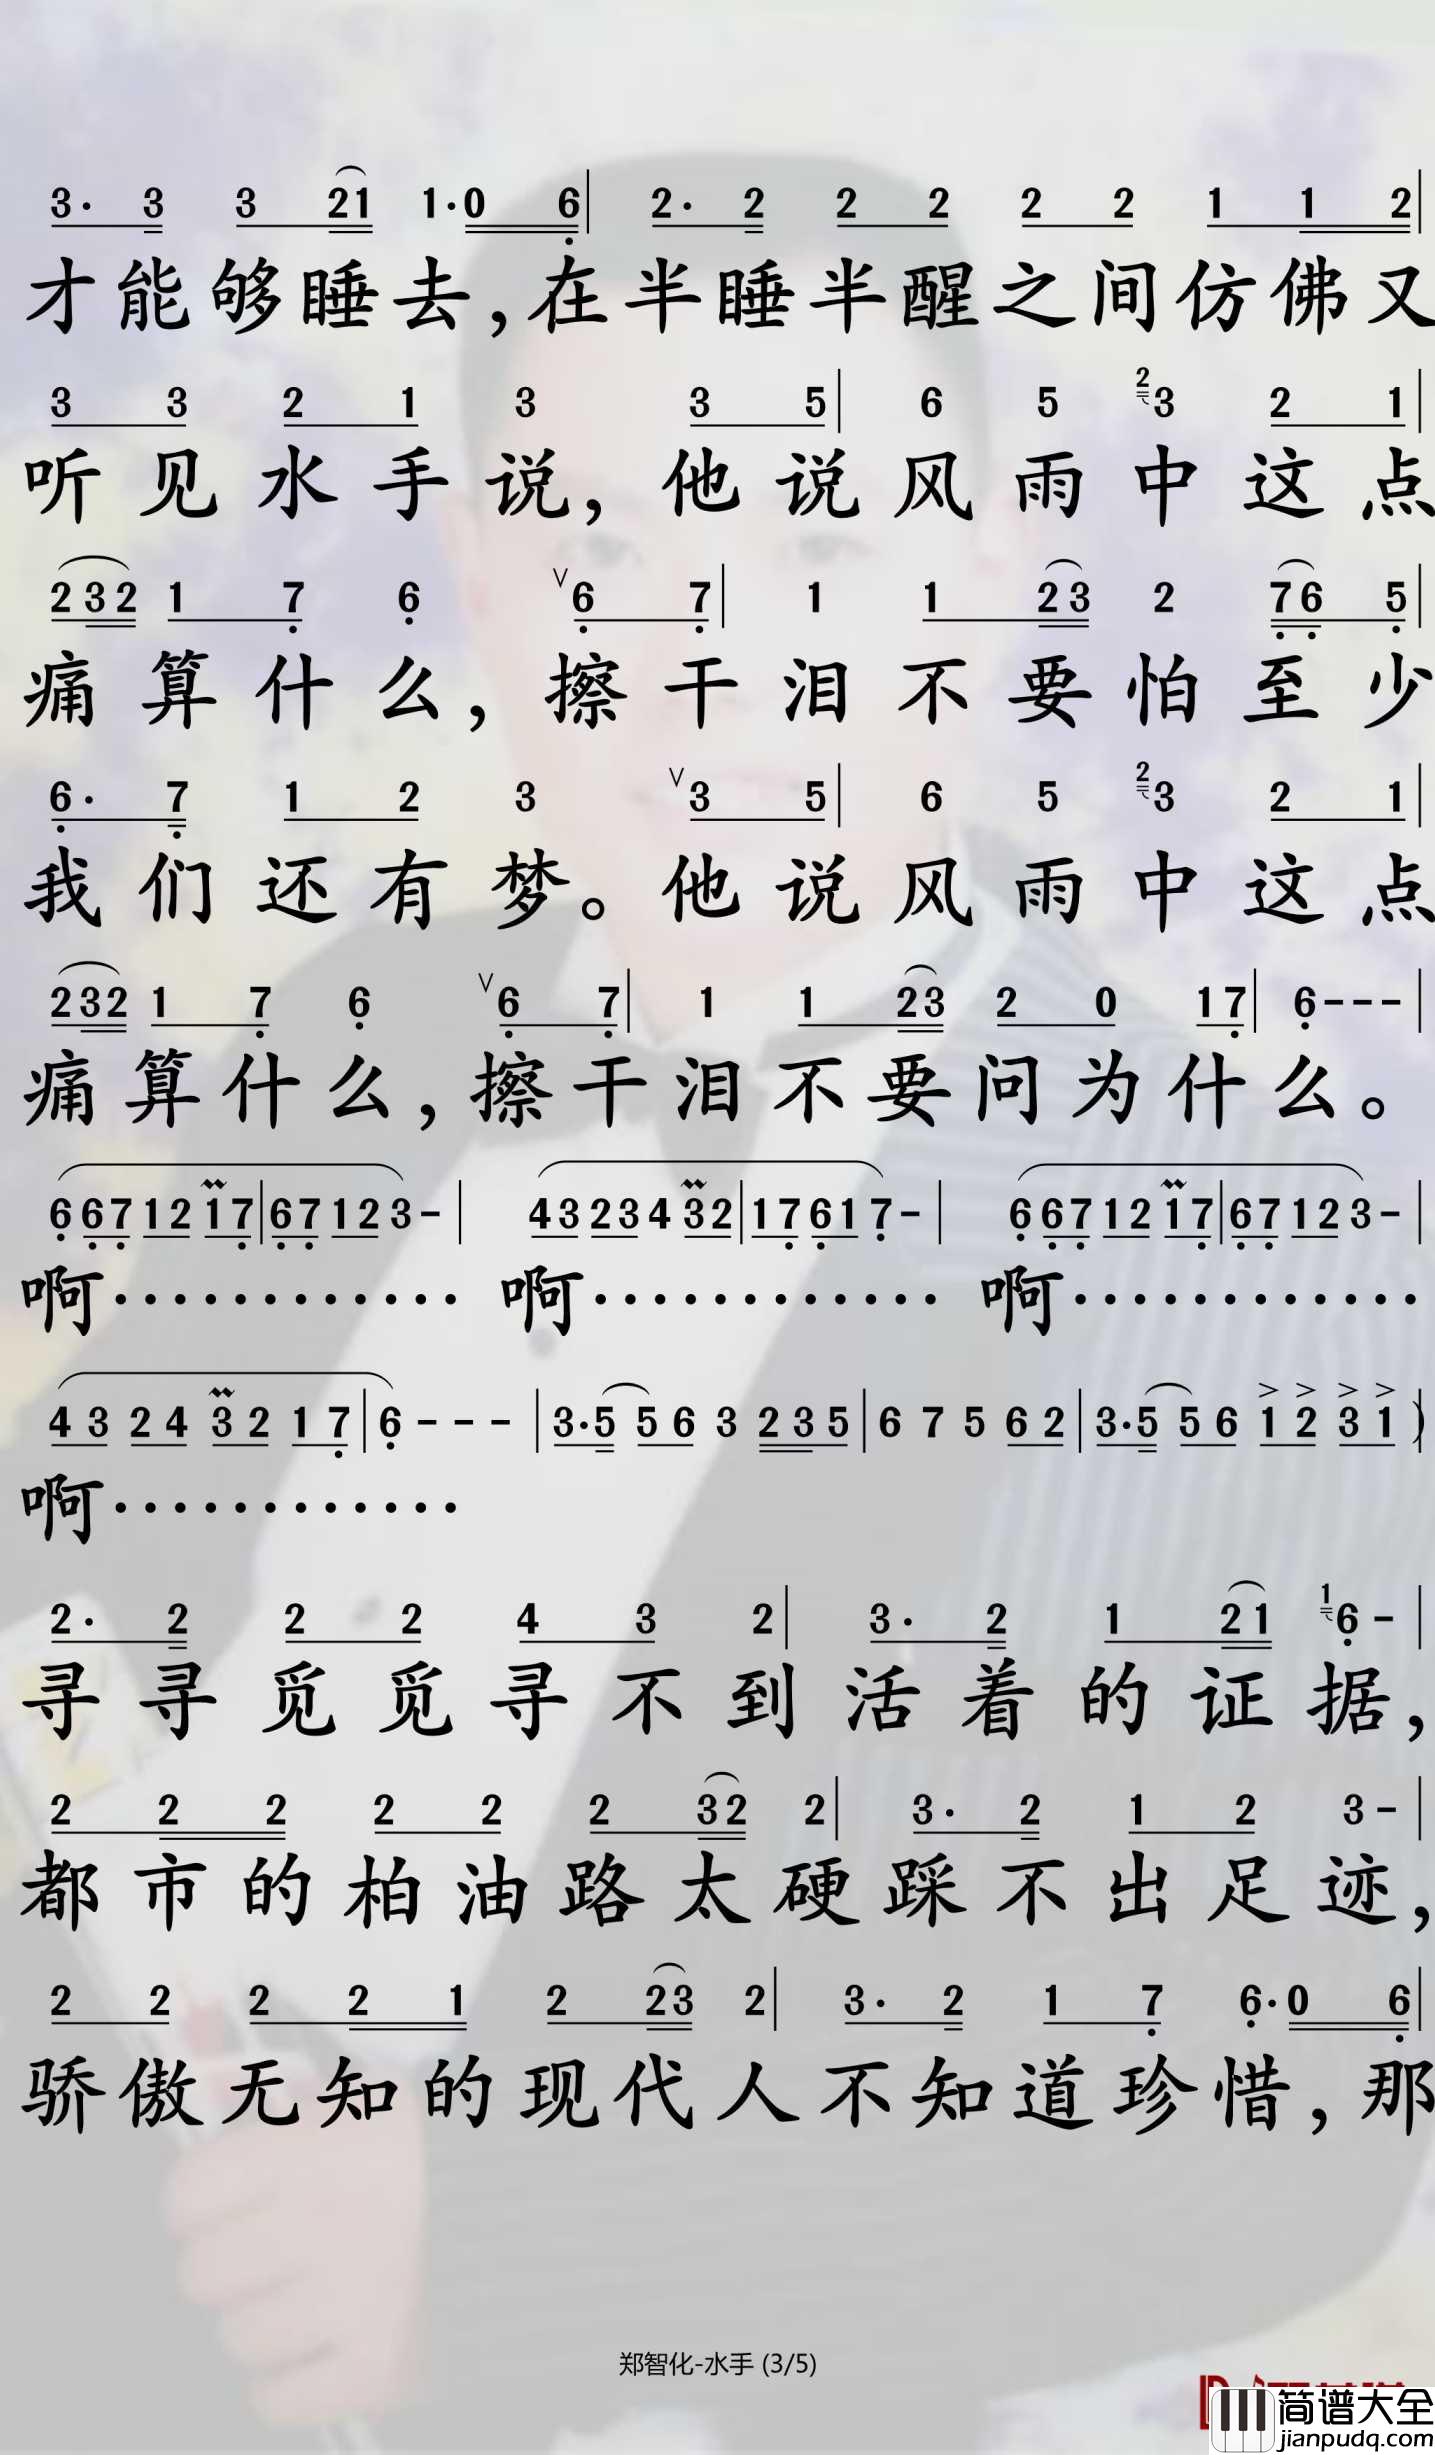 3· 3 3 21 1·0 6 | 2· 2 2 2 2 2 1 1 2 |
才能够睡去,在半睡半醒之间仿佛又
3 3 2 1 3 3 5 | 6 5 2 3 2 1 |
听见水手说,他说风雨中这点
2 3 2 1 7 6 V 6 7 | 1 1 2 3 2 7 6 5 |
痛算什么,擦干泪不要怕至少
6· 7 1 2 3 V 3 5 | 6 5 2 3 2 1 |
我们还有梦。他说风雨中这点
2 3 2 1 7 6 V 6 7 | 1 1 2 3 2 0 1 7 | 6 - - - |
痛算什么,擦干泪不要问为什么。
6 6 7 1 2 1 7 | 6 7 1 2 3 - | 4 3 2 3 4 3 2 | 1 7 6 1 7 - | 6 6 7 1 2 1 7 | 6 7 1 2 3 - |
啊············ 啊············ 啊············
4 3 2 4 3 2 1 7 | 6 - - - | 3·5 5 6 3 2 3 5 | 6 7 5 6 2 | 3·5 5 6 > 1 > 2 > 3 > 1 ) |
啊············
2· 2 2 2 4 3 2 | 3· 2 1 2 1 1 6 - |
寻寻觅觅寻不到活着的证据,
2 2 2 2 2 2 3 2 2 | 3· 2 1 2 3 - |
都市的柏油路太硬踩不出足迹,
2 2 2 2 1 2 2 3 2 | 3· 2 1 7 6·0 6 |
骄傲无知的现代人不知道珍惜,那
郑智化-水手 (3/5)
简谱大全
jianpudq.com